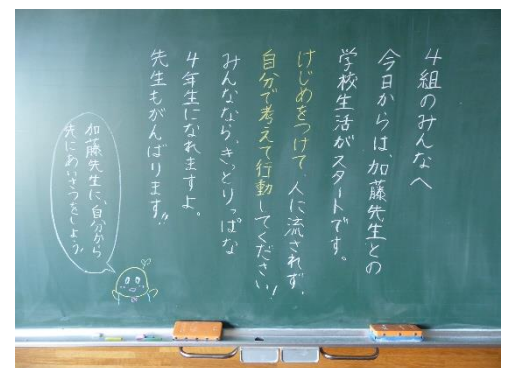 4組のみんなへ
今日からは、加藤先生との
学校生活がスタートです。
けじめをつけて、人に流されず、
自分で考えて行動してください!
みんななら、きっとりっぱな
4年生になれますよ。
先生もがんばります!!
加藤先生に、自分から
先にあいさつをしよう。